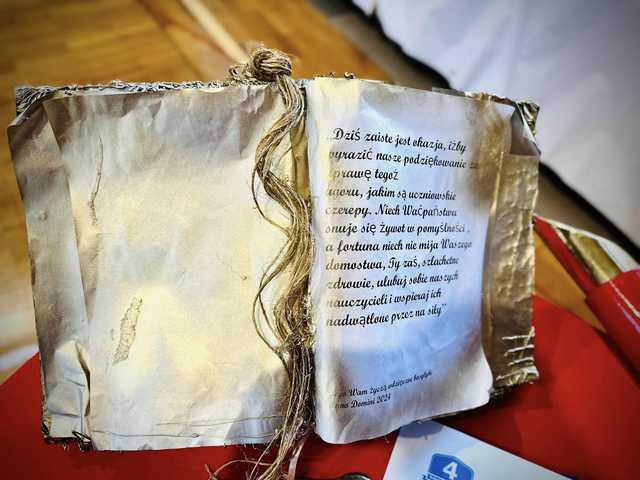 „Dziś zaiste jest okazja, iżby
wyrazić nasze podziękowanie za
uprawę tegoż
ugoru, jakim są uczniowskie
czerepy. Niech Waćpaństwa
snuje się żywot w pomyślności ,
a fortuna niech nie mija Waszego
domostwa, Ty zaś, szlachetne
zdrowie, ulubuj sobie naszych
nauczycieli i wspieraj ich
nadwątlone przez na siły”
Wam życzą wdzięczne
Anno Domini 2023
4